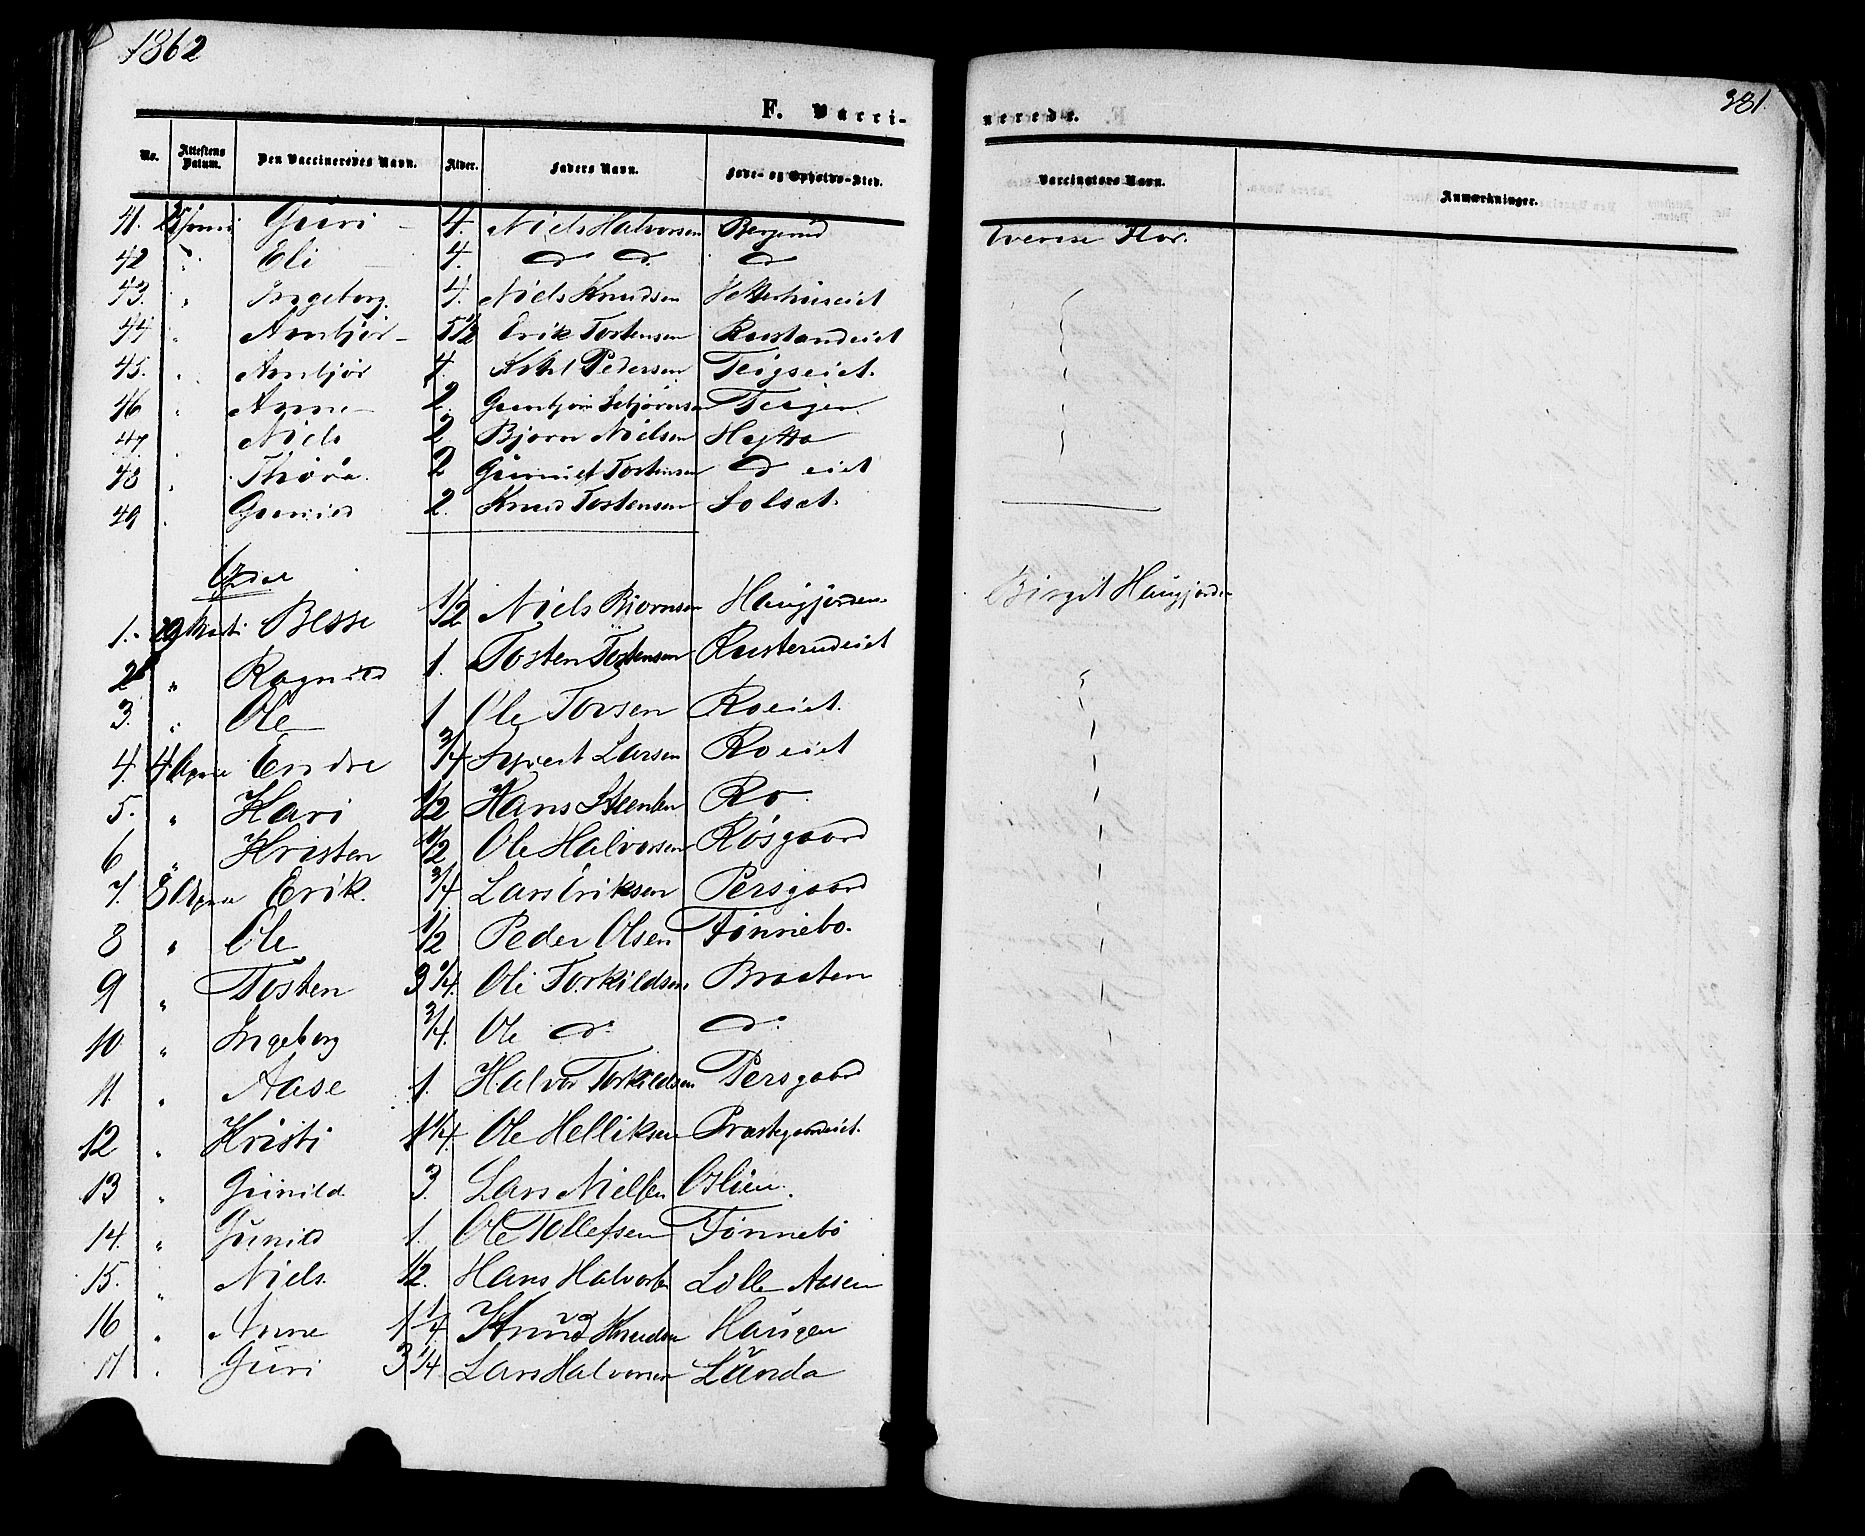 1862
381.
F. Vacci-
nerede.
No. Attestens Datum. Den Vaccineredes Navn. Alder. Faders Navn. Føde- og Opholds-Sted. Vaccinators Navn. Anmærkninger.
41. Guri 4. Niels Halvorsen Bergerud
42 " Eli 4. d d. d
43. " Ingeborg. 4. Niels Knudsen
44 " Ambjør 5 1/2 Erik Tostensen Rustandeiet
45. " Ambjør 4. Pedersen Teigseiet.
46 " Anne 2. Teigen.
47. " Niels 2 Bjørn Nielsen Hytta
48 " Thora. 2 Tostensen d eiet
49 " Gunild 2. Knud Tostensen Solsat.
1. 29 Marti Besse 1/2 Niels Bjørnsen Haugjorden Birgit Haugjorden
2 " Ragnild 1. Tosten Tostensen Rusterudeiet
3. " Ole 1 Ole Torsen Roeiet.
4. 4 April Endre 3/4 Syvert Larsen Roeiet
5. " Kari 1/2 Hans Ro.
6 " Kristen 1/2 Ole Halvorsen Rosgaard
7. 8 April Erik. 3/4 Lars Eriksen Persgaard
8 " Ole 1/2 Peder Olsen Tønnebo.
9 " Tosten 3 1/4. Ole Torkildsen Braaten
10. " Ingeborg 3/4. Ole d. d.
11. " Aase 1. Halvor Torkildsen Persgaard
12 " Kristi 1 1/4. Ole Helliksen Præstegaardeiet.
13 " Gunild 3. Lars Nielsen
14. " Gunild 1. Ole Tollefsen Tønnebo
15. " Niels. 1/2. Hans Halvorsen Lille Aasen
16 " Anne 1 1/4 Knud Knudsen Haugen
17 " Guri 3 1/4. Lars Halvorsen Lunda